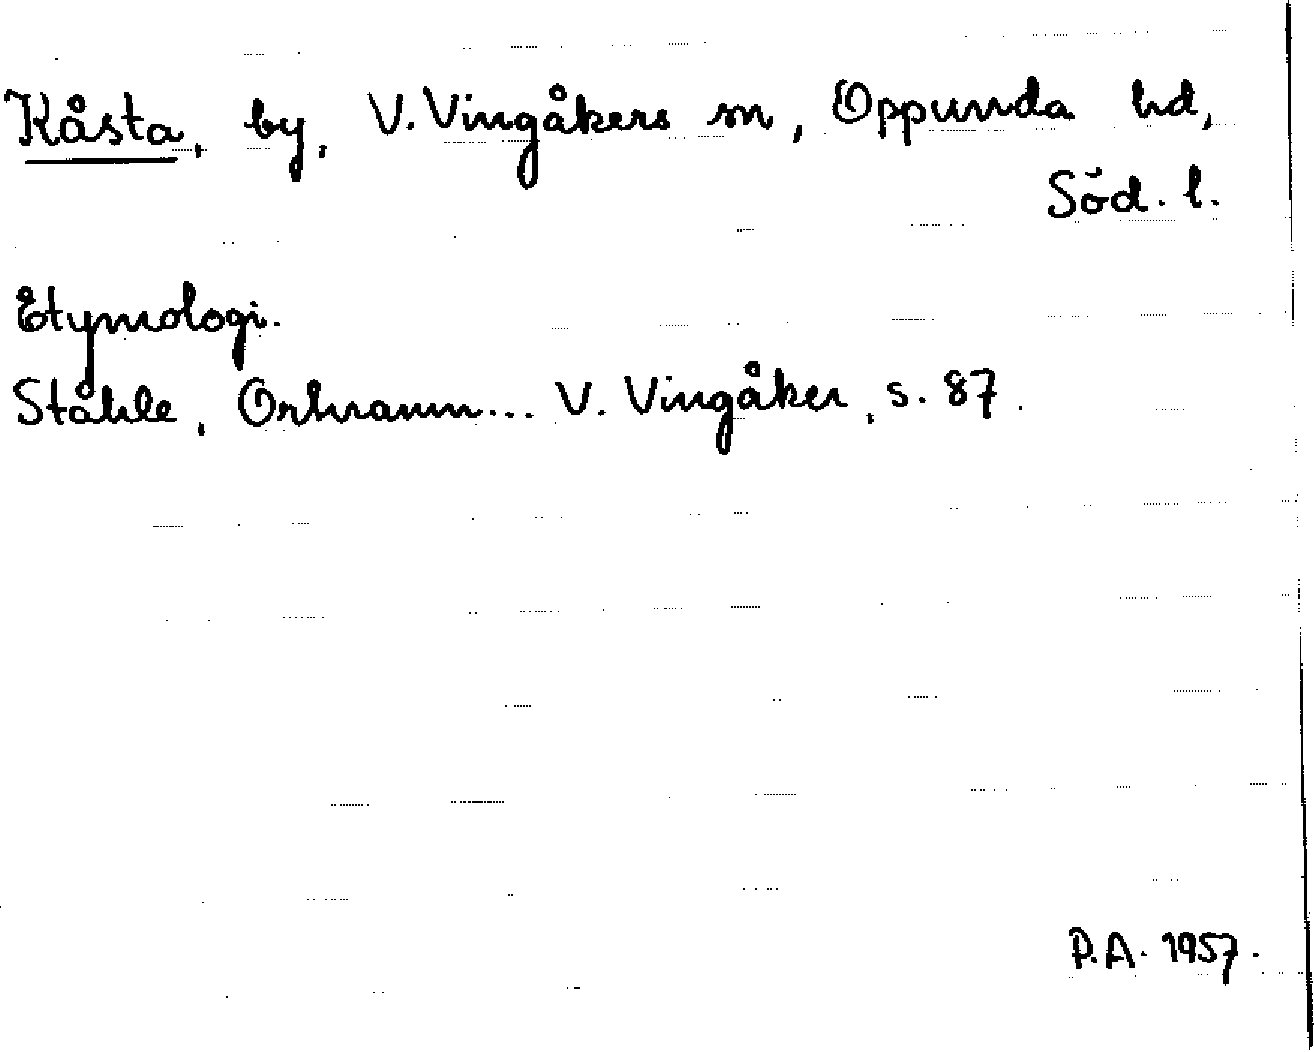 Kåsta, by, V. Vingåkers sn, Oppunda hd,
Söd. l.
Etymologi.
Ståhle, Ortnamn... V. Vingåker, s. 87.
P.A. 1957.